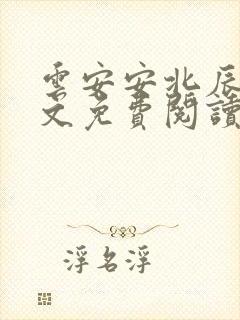 雲安安北辰
文免費閱讀
浮名浮